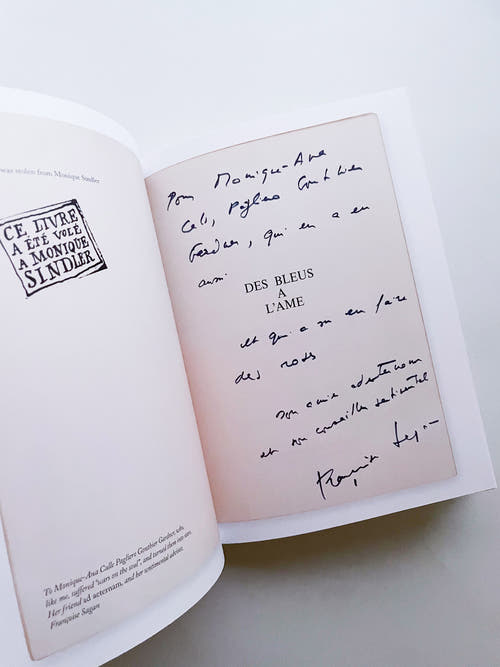 was stolen from Monique Sindler
CE LIVRE
A ÉTÉ VOLÉ
A MONIQUE
SINDLER
To Monique-Ana Calle Pagliero Gonthier Gardner, who,
like me, suffered "scars on the soul", and turned them into
Her friend ad aeternam, and her sentimental adviser.
Françoise Sagan
Pour Monique-Ana
Pagliero Gonthier
Gardner, qui en a eu
aussi
DES BLEUS
A
L'AME
et qui a su en faire
des roses
son amie ad aeternam
et son conseiller sentimental
Françoise Sagan